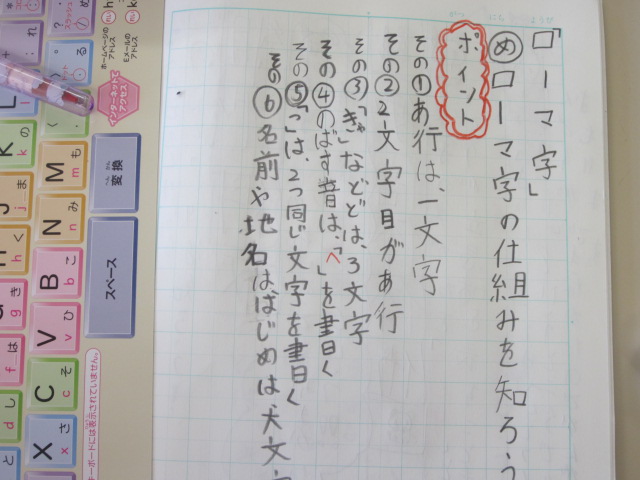 「ローマ字」
めローマ字の仕組みを知ろう
ポイント
その①あ行は、一文字
その②2文字目があ行
その③「きゃ」などは、3文字
その④のばす音は、「^」を書く
その⑤「っ」は、2つ同じ文字を書く
その⑥名前や地名ははじめは、大文字
ホームページの
アドレス
Eメールの
アドレス
インターネットで
アクセス!
変換
スペース
キーボードには表示されていません。
K の
J ま
M も
N み
B こ
V ひ
C そ
X さ
h く
g き
f は
d し
れ
め
?